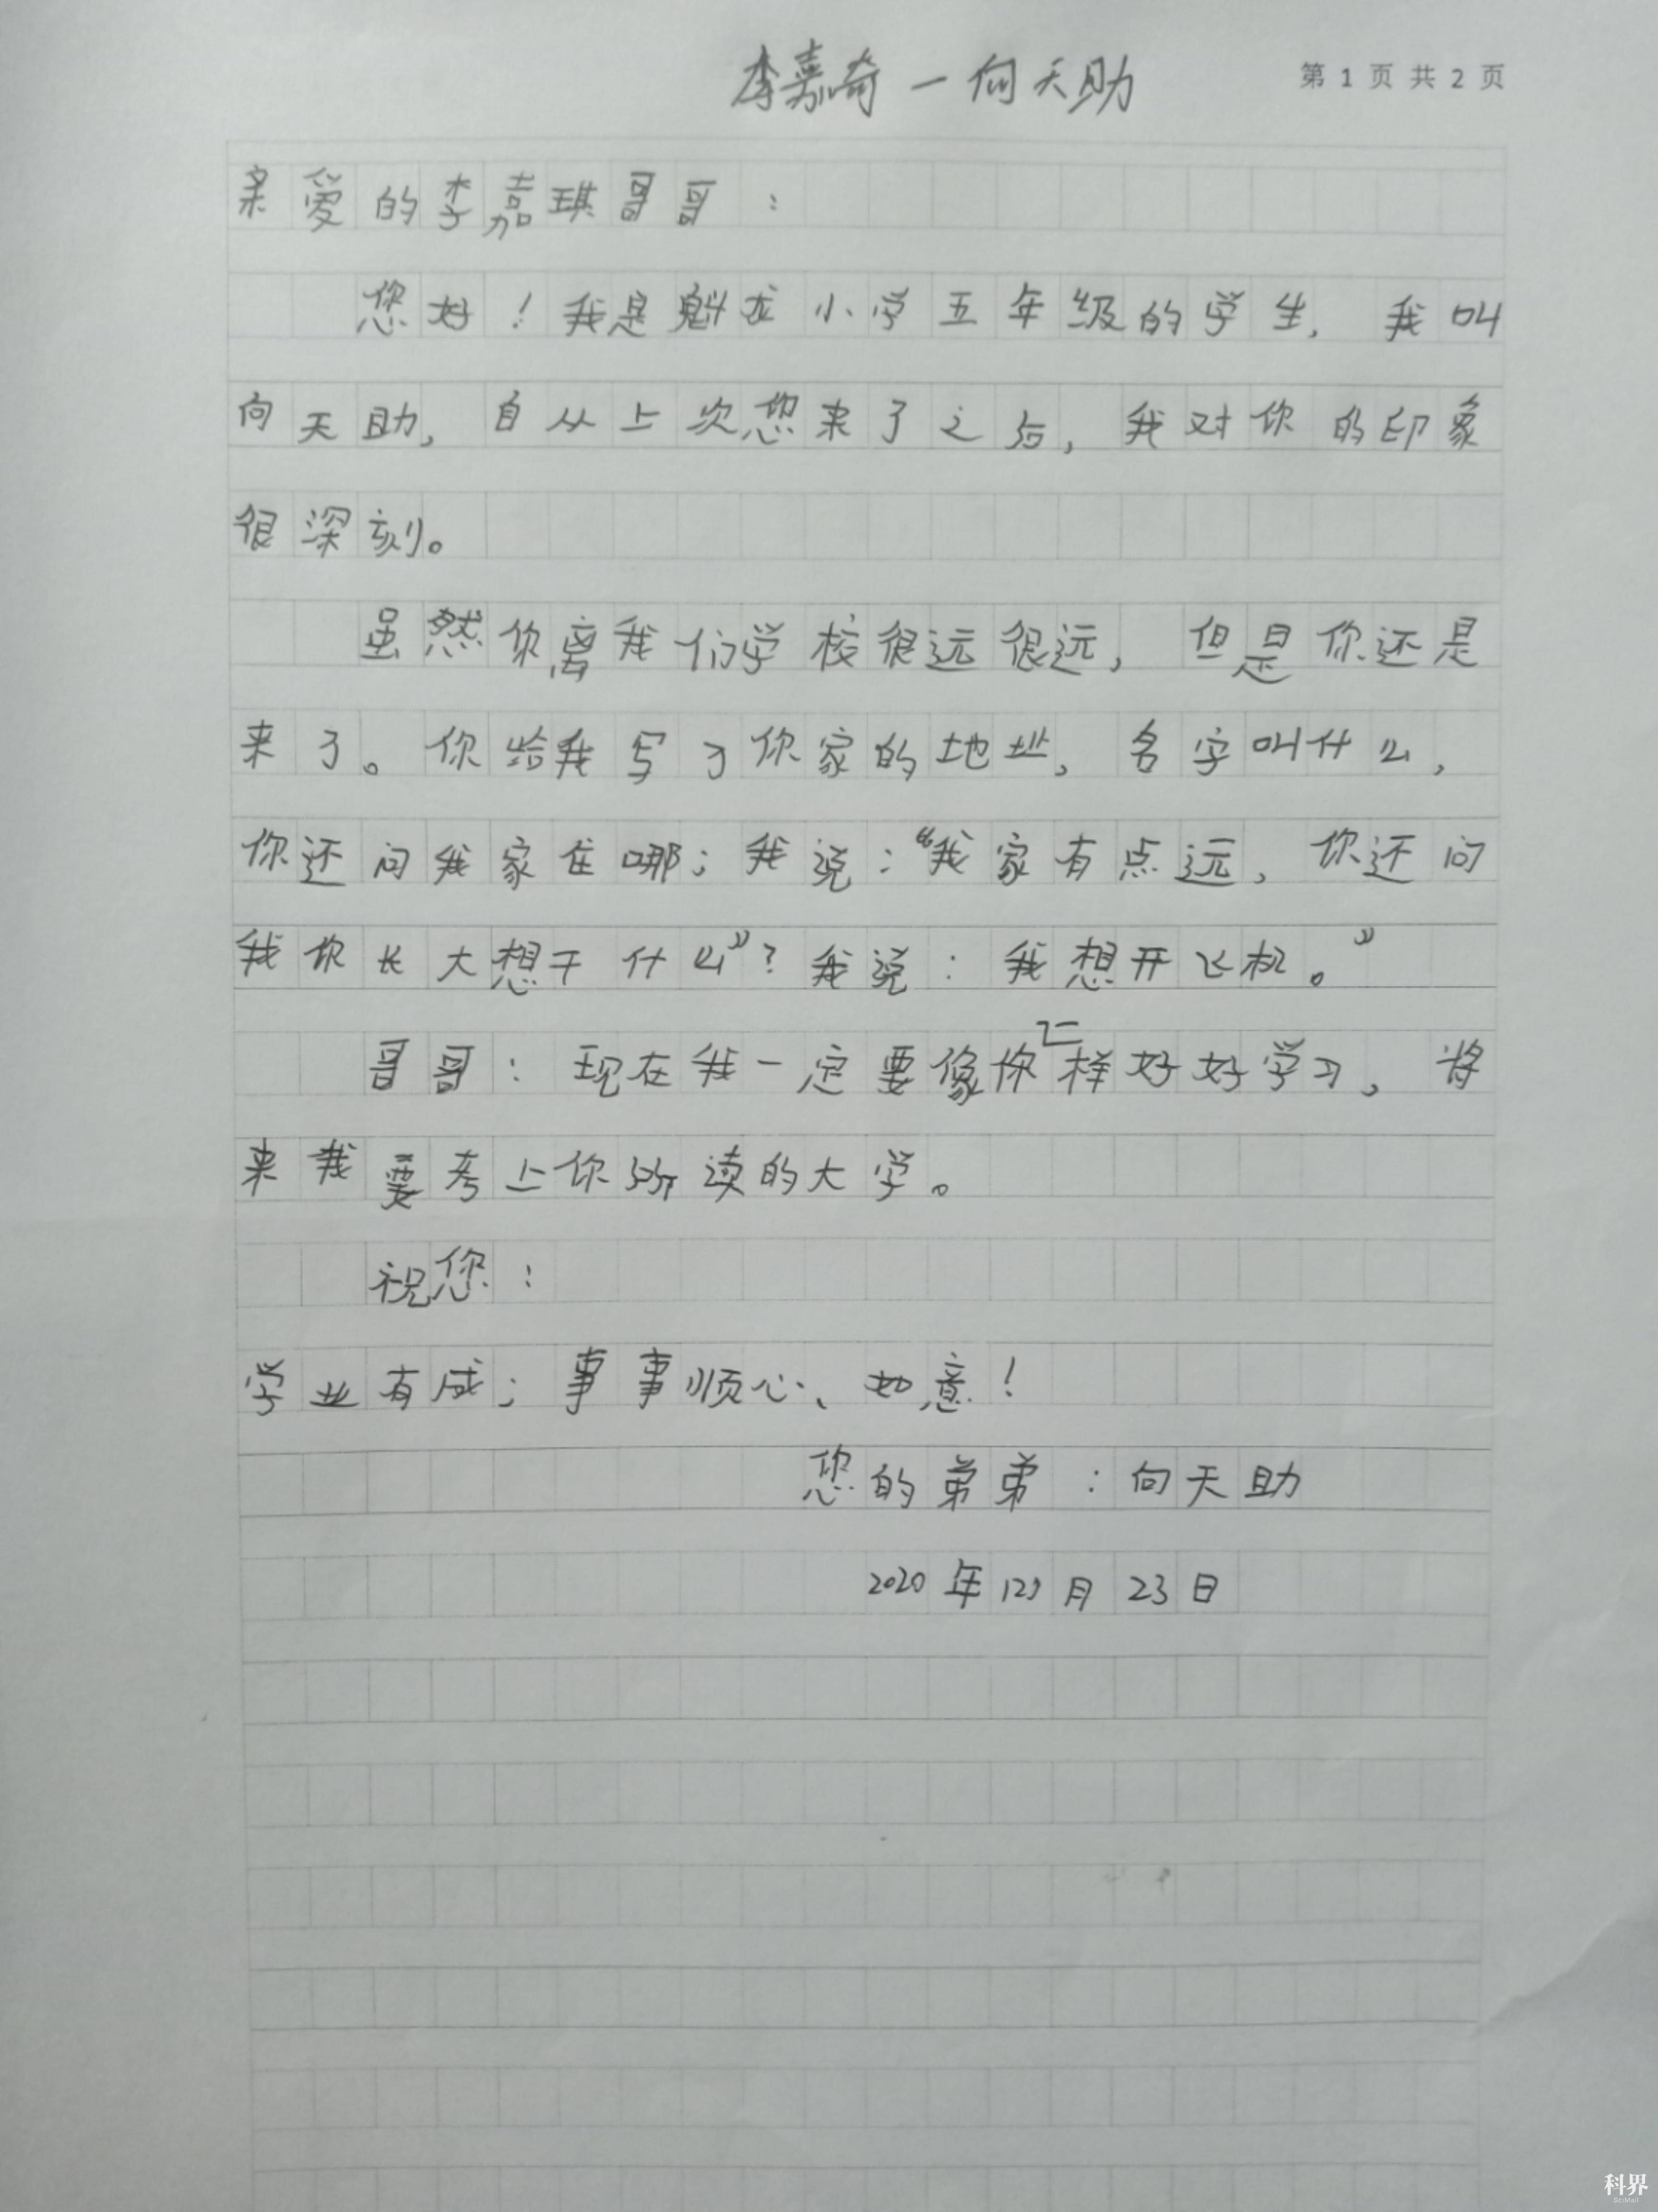 李嘉奇一向天助
第 1 页 共 2 页
亲爱的李嘉琪哥哥：
您好！我是魁龙小学五年级的学生，我叫
向天助，自从上次您来了之后，我对你的印象
很深刻。
虽然你离我们学校很远很远，但是你还是
来了。你给我写了你家的地址，名字叫什么，
你还问我家住哪；我说：“我家有点远，你还问
我你长大想干什么”？我说：我想开飞机。”
哥哥：现在我一定要像你一样好好学习，将
来我要考上你所读的大学。
祝您：
学业有成；事事顺心、如意！
您的弟弟：向天助
2020年12月23日
科界
SciMall